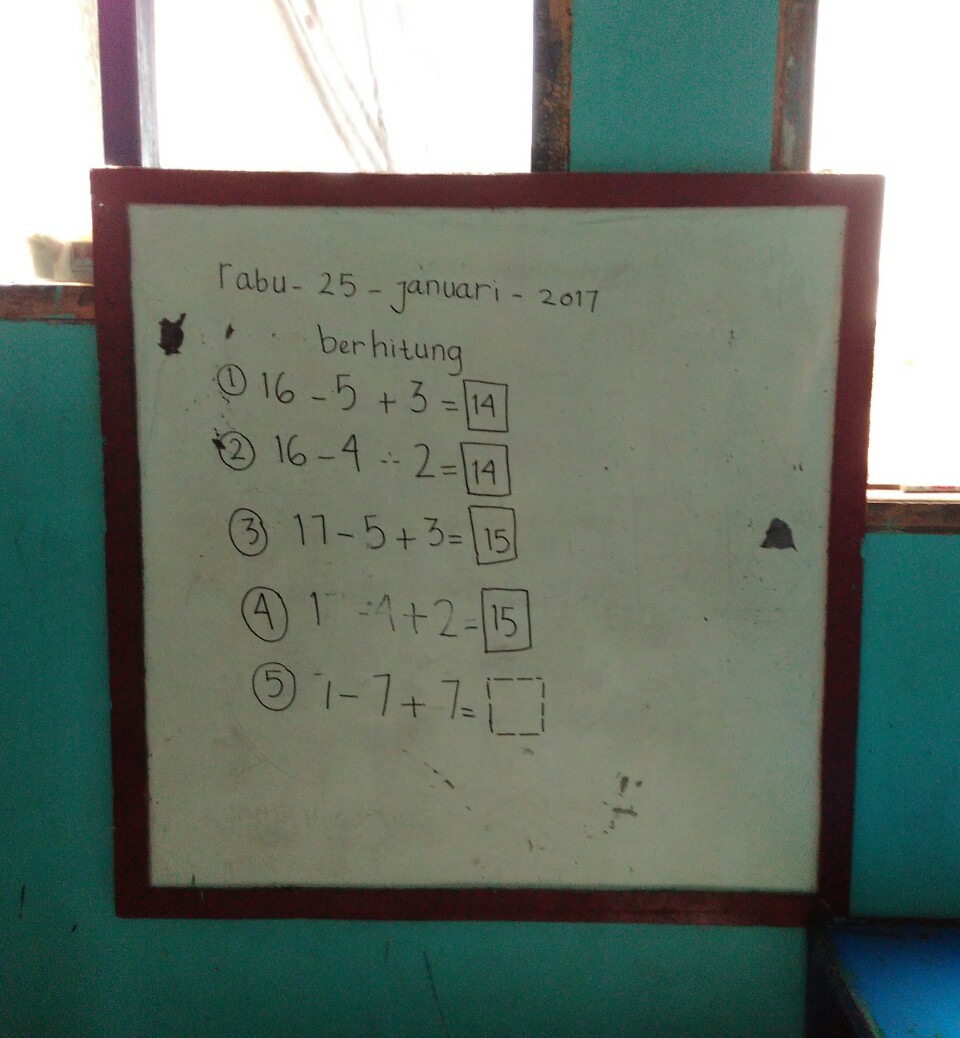 rabu - 25 - januari - 2017
berhitung
① 16 - 5 + 3 = 14
② 16 - 4 ÷ 2 = 14
③ 17 - 5 + 3 = 15
④ 1 - 4 + 2 = 15
⑤ 7 - 7 + 7 =